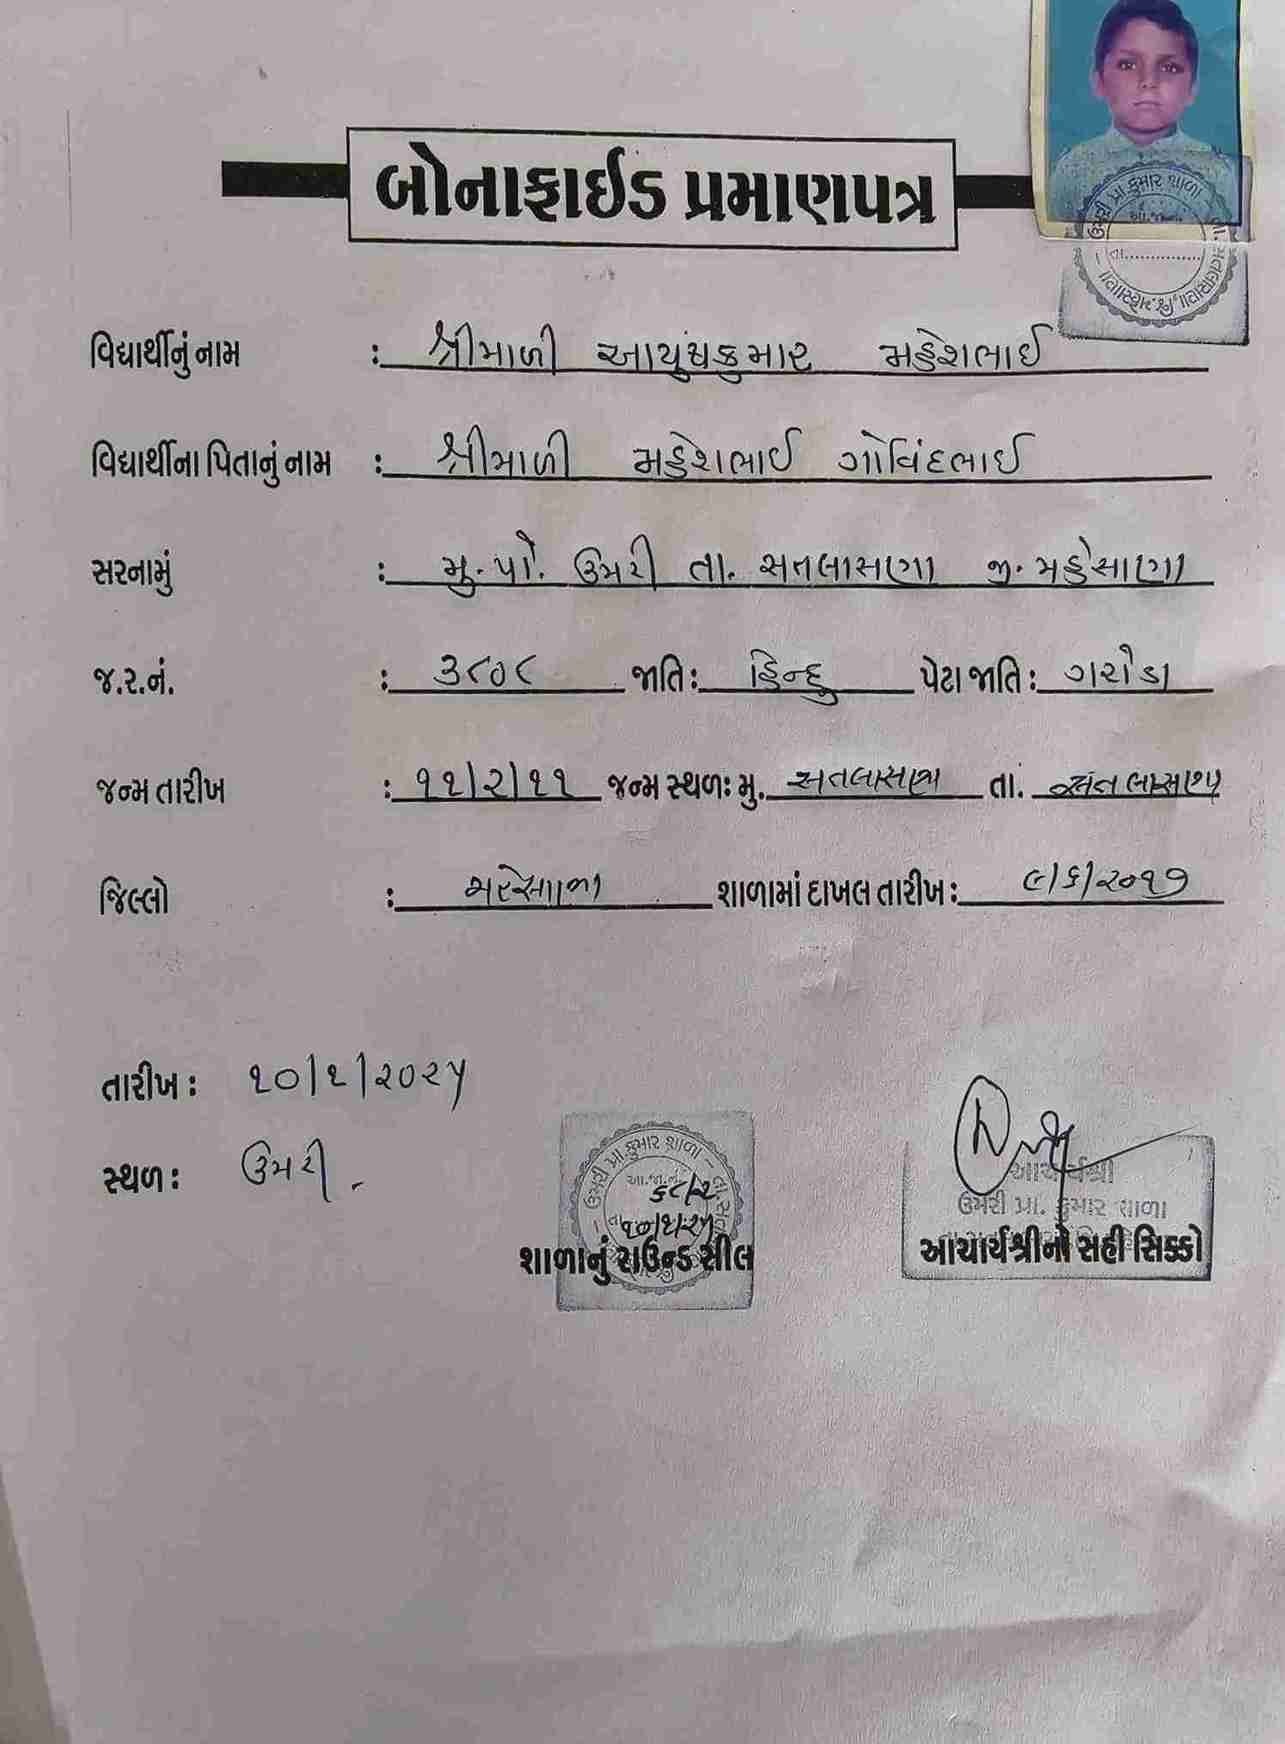 બોનાફાઈડ પ્રમાણપત્ર
ઉમરી પ્રા કુમાર શાળા
વિદ્યાર્થીનું નામ : શ્રીમાળી આયુષકુમાર મહેશભાઈ
વિદ્યાર્થીના પિતાનું નામ : શ્રીમાળી મહેશભાઈ ગોવિંદભાઈ
સરનામું : મુ. પો. ઉમરી તા. સતલાસણા જી. મહેસાણા
જ.ર.નં. : ૩૮૦૮ જાતિ : હિન્દુ પેટા જાતિ : ગરોડા
જન્મ તારીખ : ૧૧/૨/૧૧ જન્મ સ્થળ: મુ. સતલાસણા તા. સતલાસણા
જિલ્લો : મહેસાણા શાળામાં દાખલ તારીખ : ૯/૬/૨૦૧૭
તારીખ : ૧૦/૧/૨૦૨૫
સ્થળ : ઉમરી.
ઉમરી પ્રા કુમાર શાળા
૧૦/૧/૨૫
શાળાનું રાઉન્ડ સીલ
આચાર્યશ્રી
ઉમરી પ્રા. કુમાર શાળા
આચાર્યશ્રીનો સહી સિક્કો